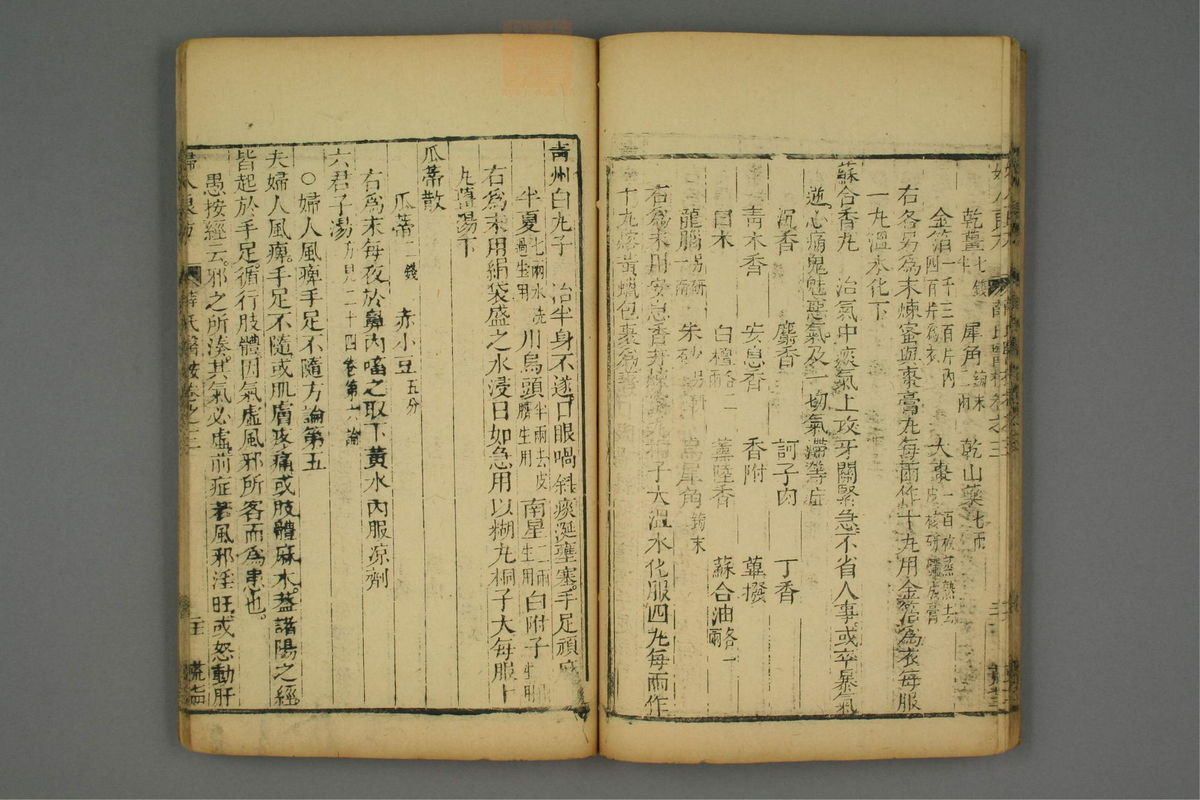 乾薑七錢半 犀角二兩鎊末 乾山藥七兩
金箔一千三百片內四百片爲衣 大棗一百枚蒸熟去皮核研爛成膏
右各另爲末煉蜜與棗膏丸每兩作十丸用金箔爲衣每服
一丸溫水化下
蘇合香丸 治氣中痰氣上攻牙關緊急不省人事或卒暴氣
逆心痛鬼魅惡氣及一切氣滯等症
沉香 麝香 訶子肉 丁香
青木香 安息香 香附 蓽撥
白木 白檀各二兩 薰陸香 蘇合油各一兩
龍腦 朱砂 烏犀角鎊末
右爲末用安息香 子大溫水化服四丸每兩作
十丸 黃蠟包裹
青州白丸子 治半身不遂口眼喎斜痰涎壅塞手足頑麻
半夏七兩水洗過生用 川烏頭半兩去皮臍生用 南星二兩生用 白附子生用
右爲末用絹袋盛之水浸日如急用以糊丸桐子大每服十
丸薑湯下
瓜蒂散
瓜蒂二錢 赤小豆五分
右爲末每夜於鼻內嗃之取下黃水內服凉劑
六君子湯方見二十四卷第六論
○婦人風痺手足不隨方論第五
夫婦人風痺手足不隨或肌膚疼痛或肢體麻木蓋諸陽之經
皆起於手足循行肢體因氣虛風邪所客而爲患也
愚按經云邪之所湊其氣必虛前症若風邪淫旺或怒動肝
婦人良方 薛氏醫按卷之三